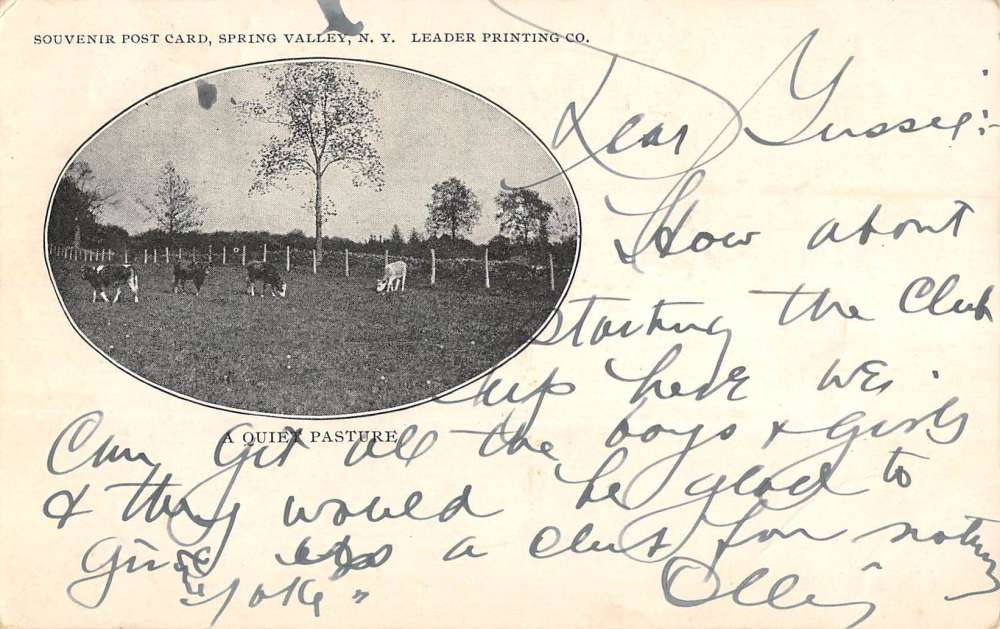 SOUVENIR POST CARD, SPRING VALLEY, N. Y. LEADER PRINTING CO.
Dear Gussie:-
How about
starting the Club
up here we
A QUIET PASTURE
Can get all the boys & girls
& they would be glad to
give us a club for nothing
"Joke"
Ollis